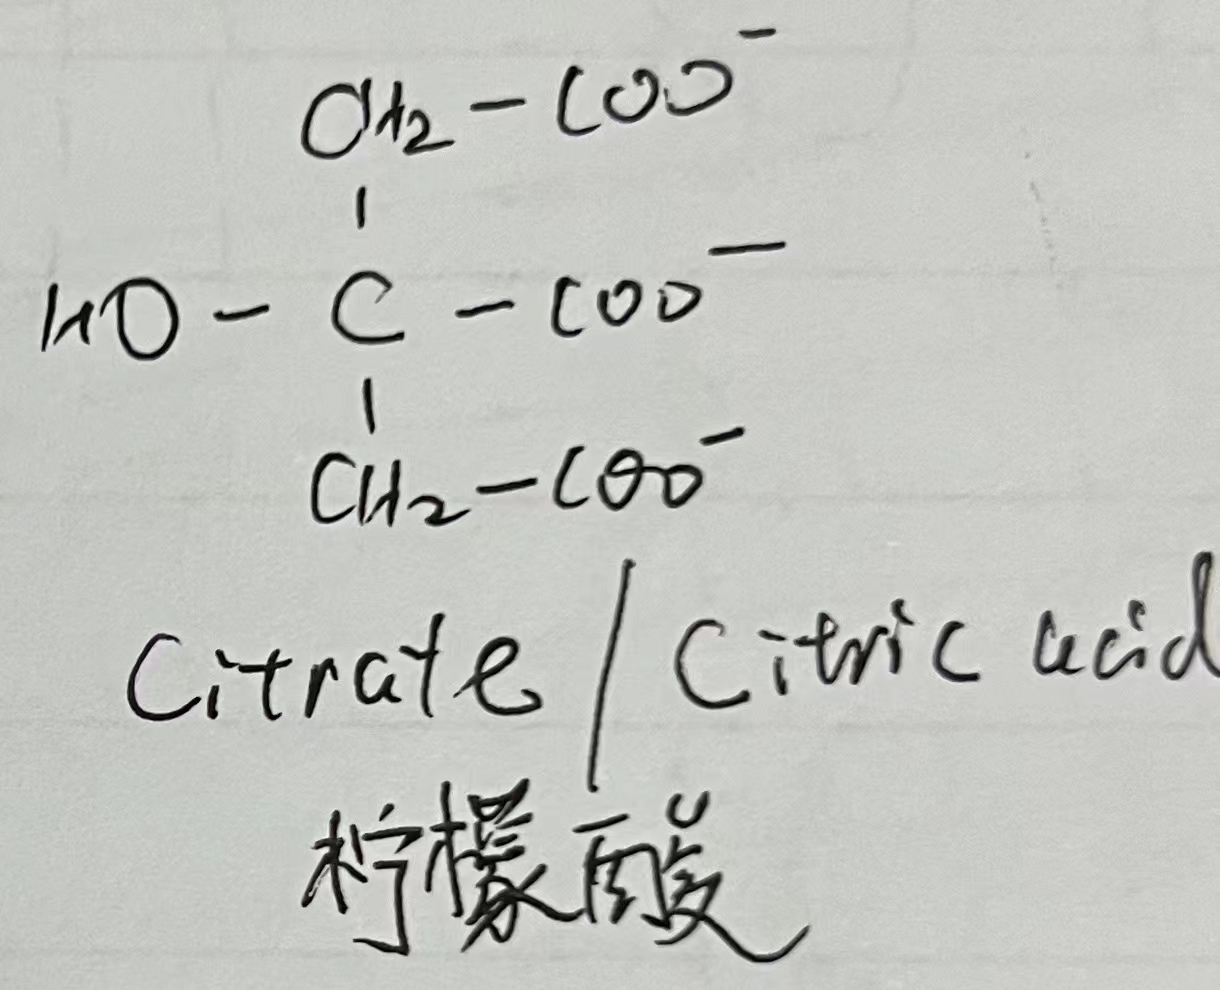 CH₂ – COO⁻
HO – C – COO⁻
CH₂ – COO⁻
Citrate / Citric acid
柠檬酸